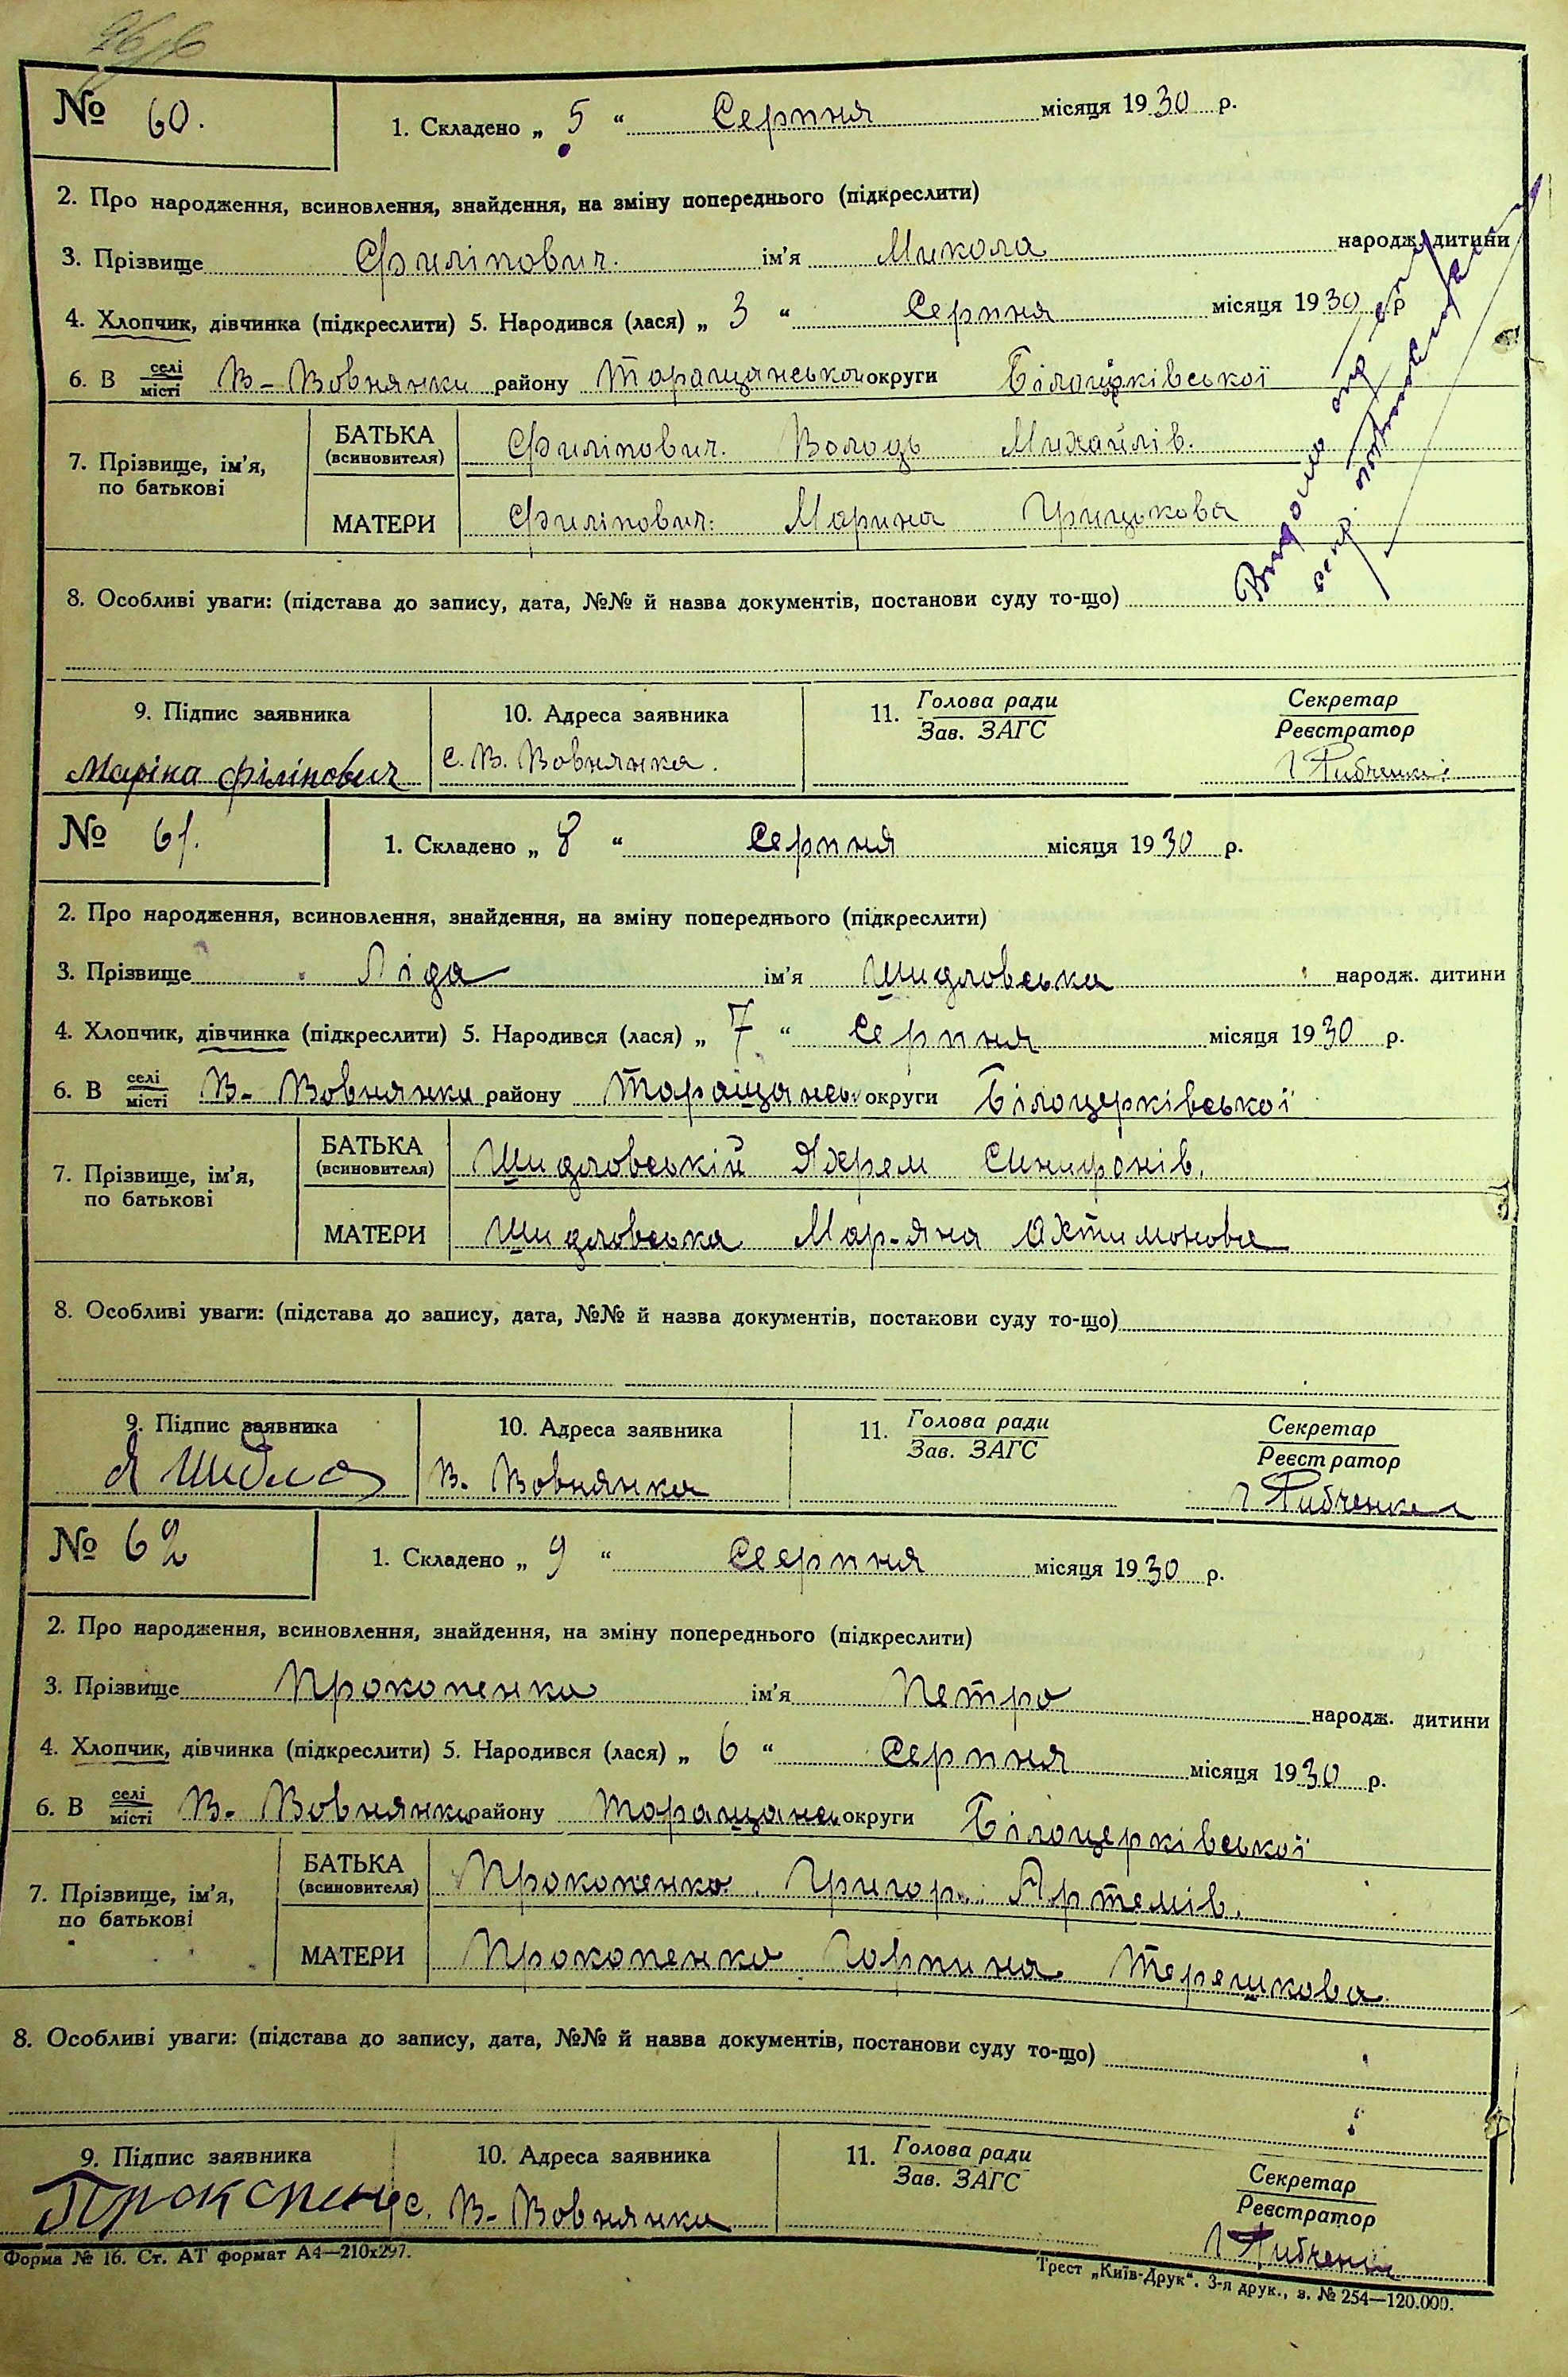 № 60. 1. Складено „ 5 “ Серпня місяця 1930 р.
2. Про народження, всиновлення, знайдення, на зміну попереднього (підкреслити)
3. Прізвище Филіпович. ім'я Микола народж. дитини
4. Хлопчик, дівчинка (підкреслити) 5. Народився (лася) „ 3 “ Серпня місяця 1930 р
6. В селі/місті В-Вовнянки району Таращанськои округи Білоцерківської
7. Прізвище, ім'я, по батькові
БАТЬКА (всиновителя) Филіпович. Володь Михайлів.
МАТЕРИ Филіпович: Марина Грицькова
Видано
8. Особливі уваги: (підстава до запису, дата, №№ й назва документів, постанови суду то-що)
9. Підпис заявника 10. Адреса заявника 11. Голова ради Секретар
Зав. ЗАГС Реєстратор
Маріка філіпович с. В. Вовнянка.
№ 61. 1. Складено „ 8 “ Серпня місяця 1930 р.
2. Про народження, всиновлення, знайдення, на зміну попереднього (підкреслити)
3. Прізвище Ліда ім'я Шидловська народж. дитини
4. Хлопчик, дівчинка (підкреслити) 5. Народився (лася) „ 7 “ Серпня місяця 1930 р.
6. В селі/місті В-Вовнянки району Таращансь округи Білоцерківської
7. Прізвище, ім'я, по батькові
БАТЬКА (всиновителя) Шидловській
МАТЕРИ Шидловська Мар-яна Охтимонова
8. Особливі уваги: (підстава до запису, дата, №№ й назва документів, постанови суду то-що)
9. Підпис заявника 10. Адреса заявника 11. Голова ради Секретар
Зав. ЗАГС Реєстратор
В. Вовнянка
№ 62 1. Складено „ 9 “ Сеерпня місяця 1930 р.
2. Про народження, всиновлення, знайдення, на зміну попереднього (підкреслити)
3. Прізвище Прокопенко ім'я Петро народж. дитини
4. Хлопчик, дівчинка (підкреслити) 5. Народився (лася) „ 6 “ Серпня місяця 1930 р.
6. В селі/місті В-Вовнянки району Таращансь округи Білоцерківської
7. Прізвище, ім'я, по батькові
БАТЬКА (всиновителя) Прокопенко. Григор. Артемів.
МАТЕРИ Прокопенко Горпина Терешкова
8. Особливі уваги: (підстава до запису, дата, №№ й назва документів, постанови суду то-що)
9. Підпис заявника 10. Адреса заявника 11. Голова ради Секретар
Зав. ЗАГС Реєстратор
с. В-Вовнянки
Форма № 16. Ст. АТ формат А4—210х297. Трест „Київ-Друк“. 3-я друк., з. № 254—120.000.